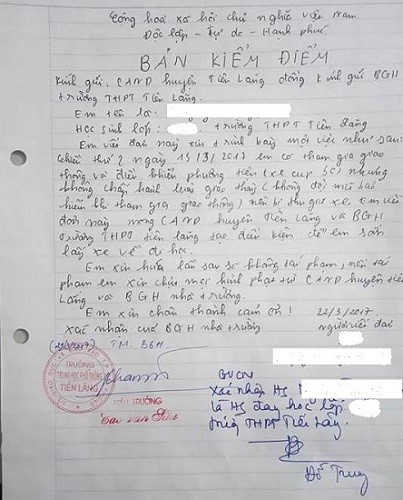 Cộng hoà xã hội chủ nghĩa Việt Nam
Độc lập - Tự do - Hạnh phúc
BẢN KIỂM ĐIỂM
Kính gửi: CAND huyện Tiên Lãng đồng kính gửi BGH
trường THPT Tiên Lãng.
Em tên là:
Học sinh lớp: trường THPT Tiên Lãng
Em viết đơn này xin trình bày một việc như sau:
chiều thứ 2 ngày 13/3/2017 em có tham gia giao
thông và điều khiển phương tiện (xe cup 50) nhưng
không chấp hành luật giao thông (không đội mũ bảo
hiểm khi tham gia giao thông) nên bị thu giữ xe. Em viết
đơn này mong CAND huyện Tiên Lãng và BGH
trường THPT Tiên Lãng tạo điều kiện để em sớm
lấy xe về đi học.
Em xin hứa lần sau sẽ không tái phạm, nếu tái
phạm em xin chịu mọi hình phạt từ CAND huyện Tiên
Lãng và BGH nhà trường.
Em xin chân thành cảm ơn! 22/3/2017
Xác nhận của BGH nhà trường người viết đơn
T.M. BGH
TRƯỜNG
TRUNG HỌC PHỔ THÔNG
TIÊN LÃNG
HIỆU TRƯỞNG
GVCN
Xác nhận HS
là HS đang học lớp
trường THPT Tiên Lãng.
Đỗ Trung